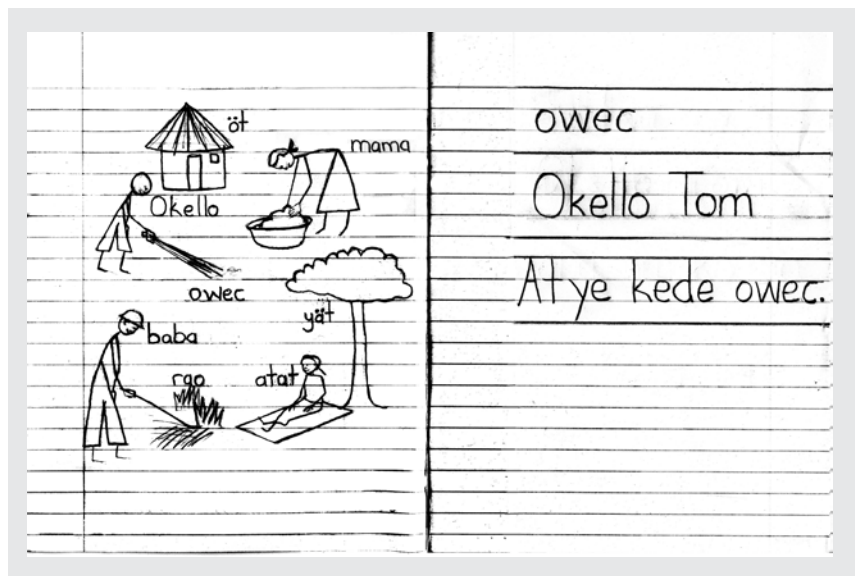 öt
mama
Okello
owec
yät
baba
rao
atat
owec
Okello Tom
Atye kede owec.